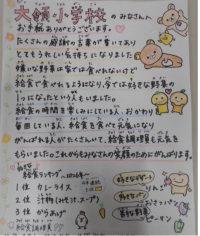 大領小学校のみなさんへ
お手紙ありがとうございます。
たくさんの感謝の言葉が書いてあり
とてもうれしい気持ちになりました
嫌いな野菜は家では食べれないけど
給食で食べれるようになり、今では好きな野菜の
1つになったという人もいました。
給食の時間を楽しみにしている人、おかわりを
毎回している人、給食を食べて元気になり
がんばれる人がたくさんいて、給食調理員も元気を
もらいました。これからもみなさんの笑顔のためにがんばります。
給食ランキング
1位 カレーライス
2位 汁物(みそ汁、スープ)
3位 からあげ
好きなデザート
りんご
好きなパン
苦手な野菜
ピーマン
給食調理員